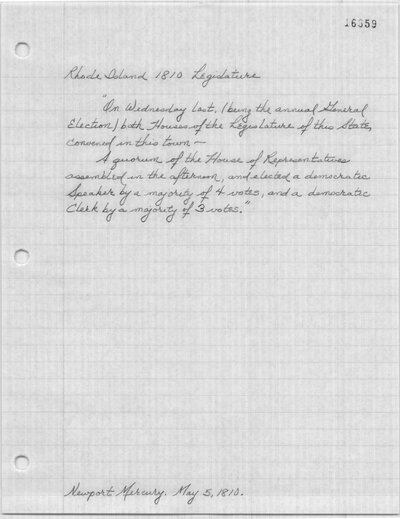 16659
Rhode Island 1810 Legislature
"On Wednesday last, (being the annual General
Election) both Houses of the Legislature of this State,
convened in this town —
A quorum of the House of Representatives
assembled in the afternoon, and elected a democratic
Speaker by a majority of 4 votes, and a democratic
Clerk by a majority of 3 votes."
Newport Mercury. May 5, 1810.